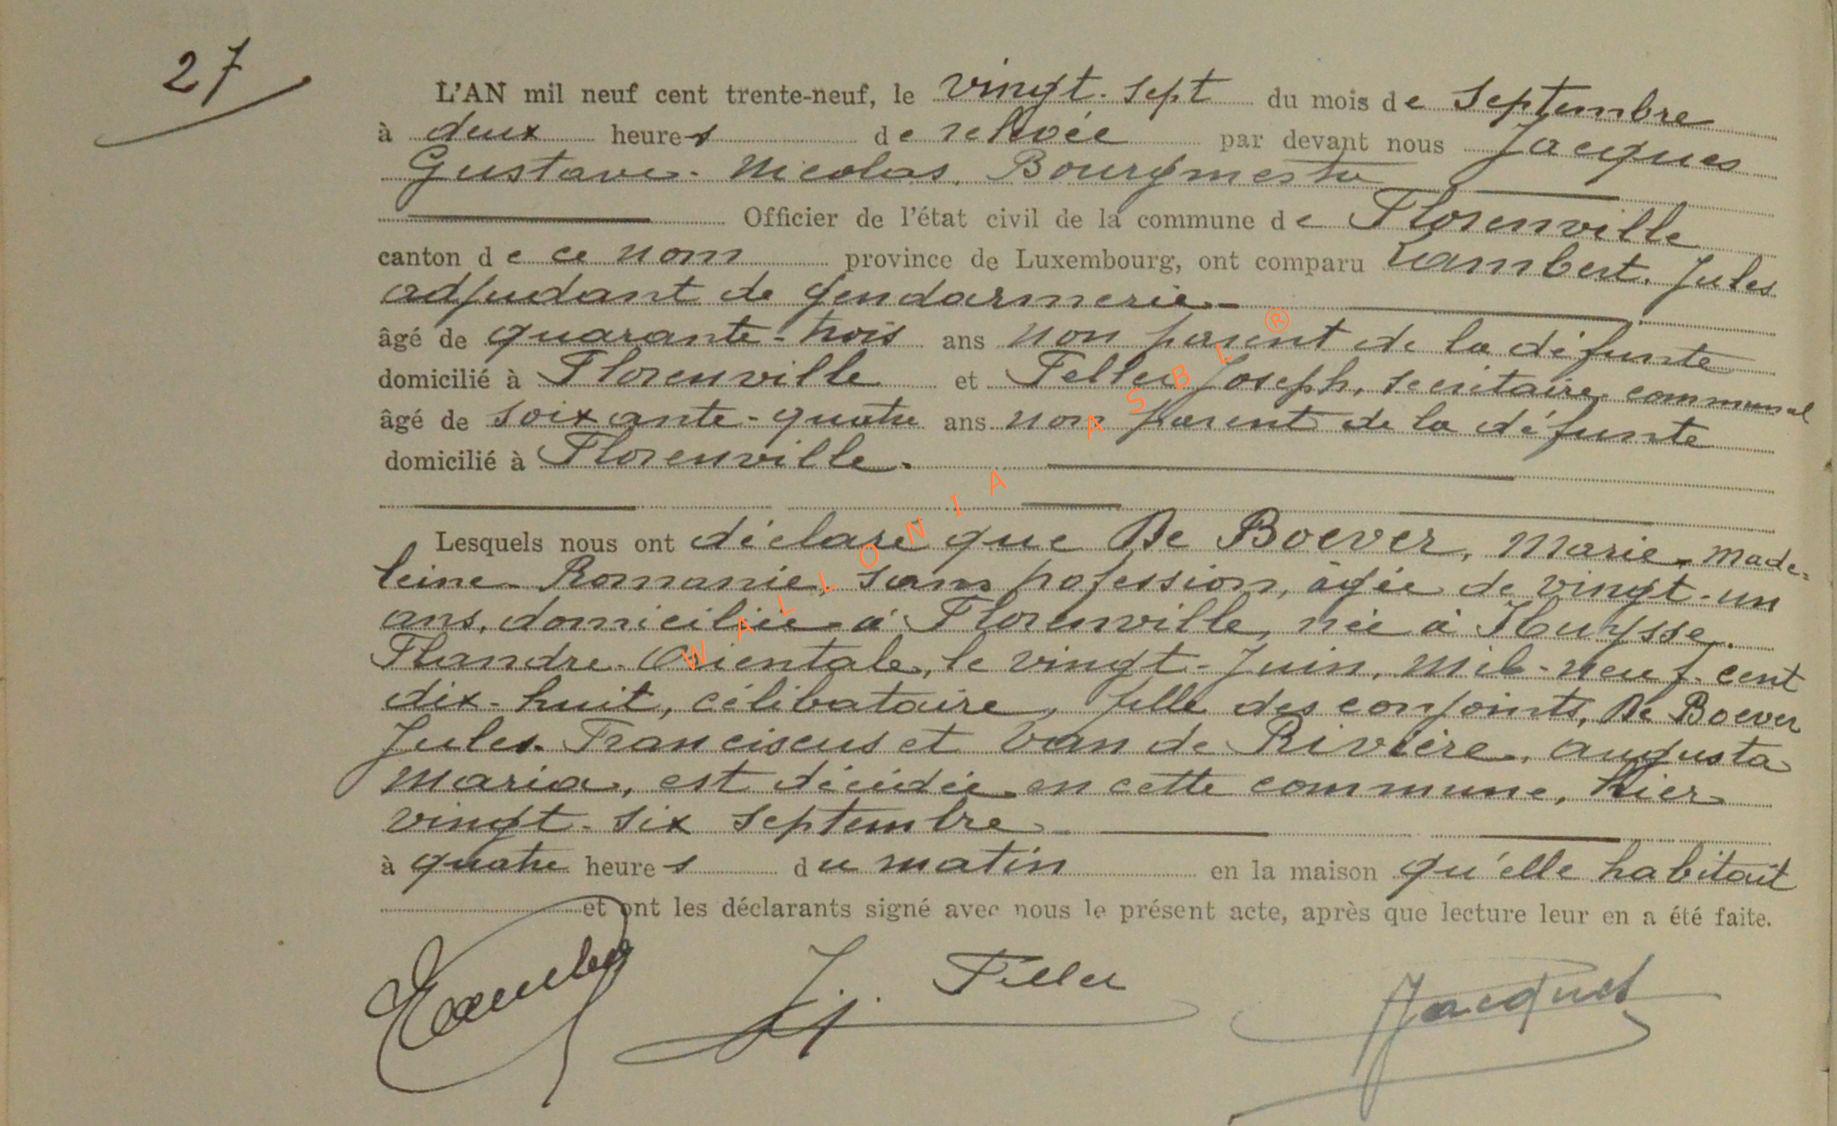 27
L'AN mil neuf cent trente-neuf, le vingt-sept du mois de Septembre
à deux heures de relevée par devant nous Jacques
Gustave-Nicolas, Bourgmestre
Officier de l'état civil de la commune de Florenville
canton de ce nom province de Luxembourg, ont comparu Lambert, Jules
adjudant de gendarmerie
âgé de quarante-trois ans non parent de la défunte
domicilié à Florenville et Feller Joseph, secrétaire communal
âgé de soixante-quatre ans non parent de la défunte
domicilié à Florenville.
Lesquels nous ont déclaré que De Boever, Marie-Made-
leine-Romanie, sans profession, âgée de vingt-un
ans, domiciliée à Florenville, née à Huysse,
Flandre-Orientale, le vingt-Juin, mil-neuf-cent
dix-huit, célibataire, fille des conjoints, De Boever
Jules-Franciscus et Van de Rivière, Augusta
Maria, est décédée en cette commune, hier
vingt-six septembre
à quatre heures du matin en la maison qu'elle habitait
et ont les déclarants signé avec nous le présent acte, après que lecture leur en a été faite.
J. J. Feller Jacques
WALLONIA ASBL ®